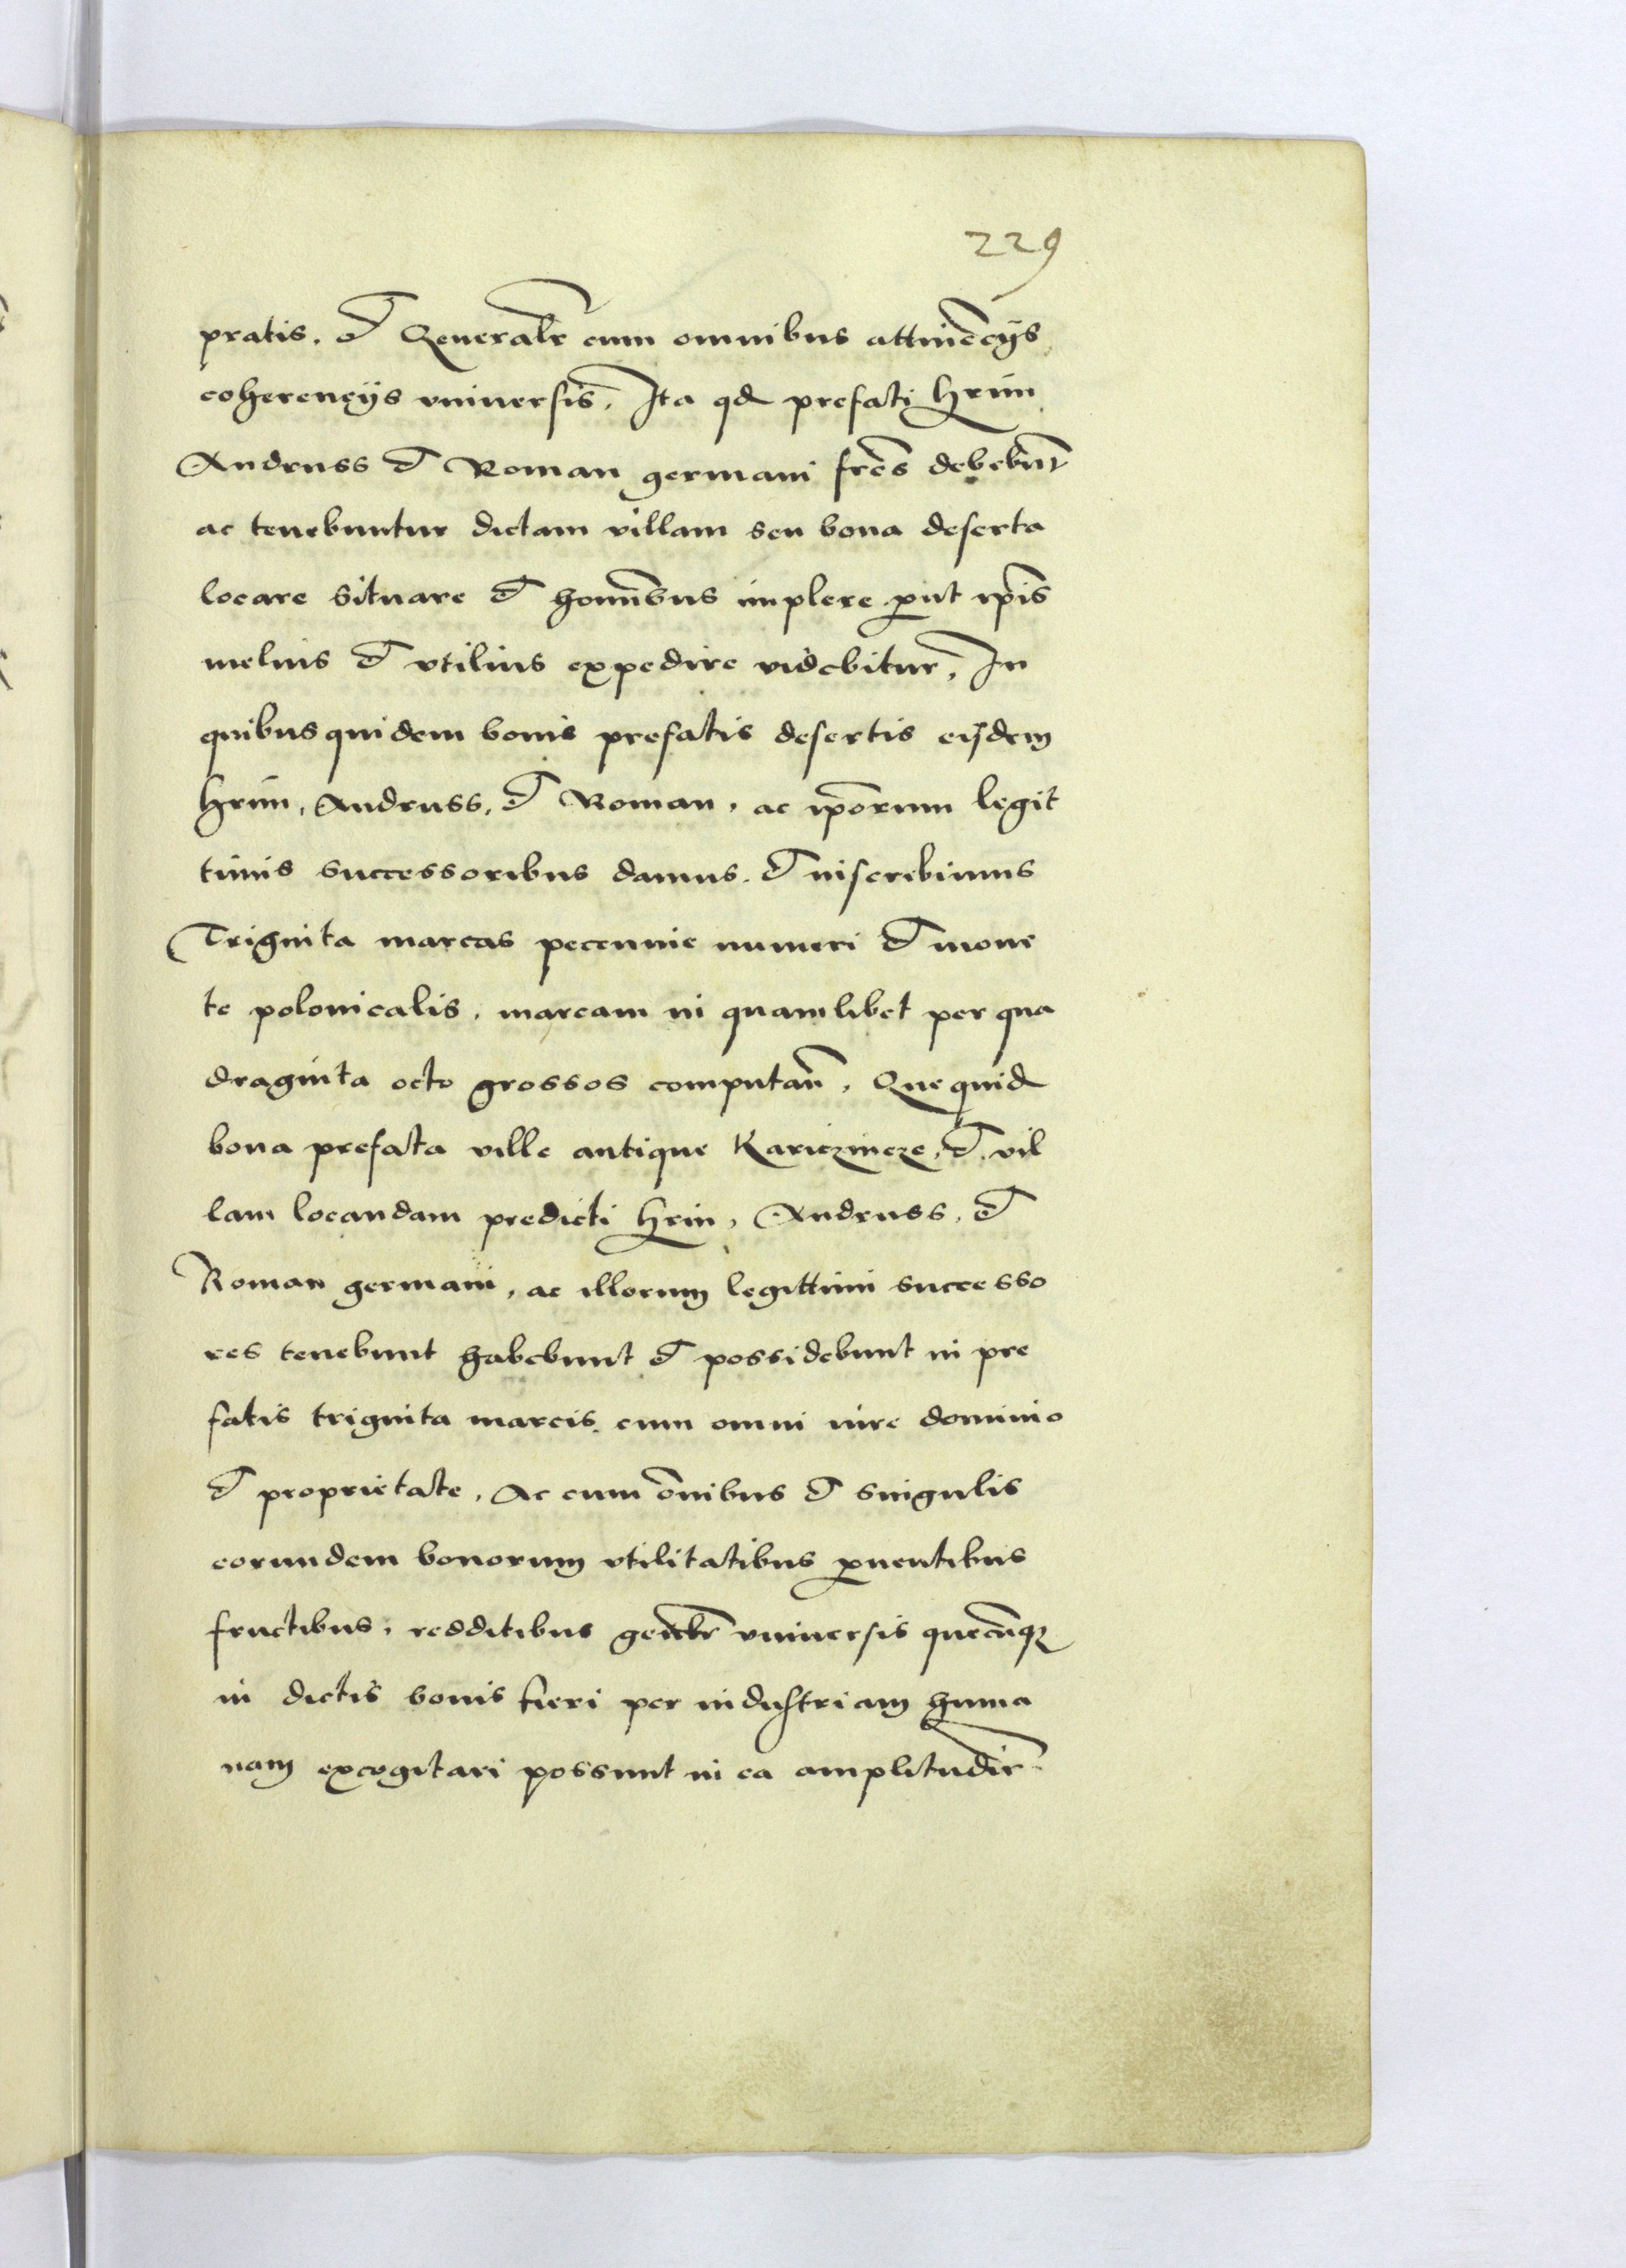 229
pratis. et Generalr cum omnibus attinēcijs
coherencijs vniuersis. Ita qd prefati Hrim
Andruss et Roman germani fres debebunt
ac tenebuntur dictam villam seu bona deserta
locare situare et hominibus implere put ipis
melius et vtilius expedire videbitur. In
quibus quidem bonis prefatis desertis eisdem
Hrim, Andruss, et Roman, ac ipōrum legit
timis successoribus damus. et inscribimus
Triginta marcas peccunie numeri et mone
te polonicalis, marcam in quamlibet per qua
draginta octo grossos computan̄, Que quid
bona prefata ville antique Kariczincze, et vil
lam locandam predicti Hrin, Andruss, et
Roman germani, ac illorum legittimi successo
res tenebunt habebunt et possidebunt in pre
fatis triginta marcis cum omni iure dominio
et proprietate, Ac cum ōnibus et singulis
eorundem bonorum vtilitatibus puentibus
fructibus, redditibus genlr vniuersis quecūqꝫ
in dictis bonis fieri per industriam huma
nam excogitari possunt in ea amplitudīe